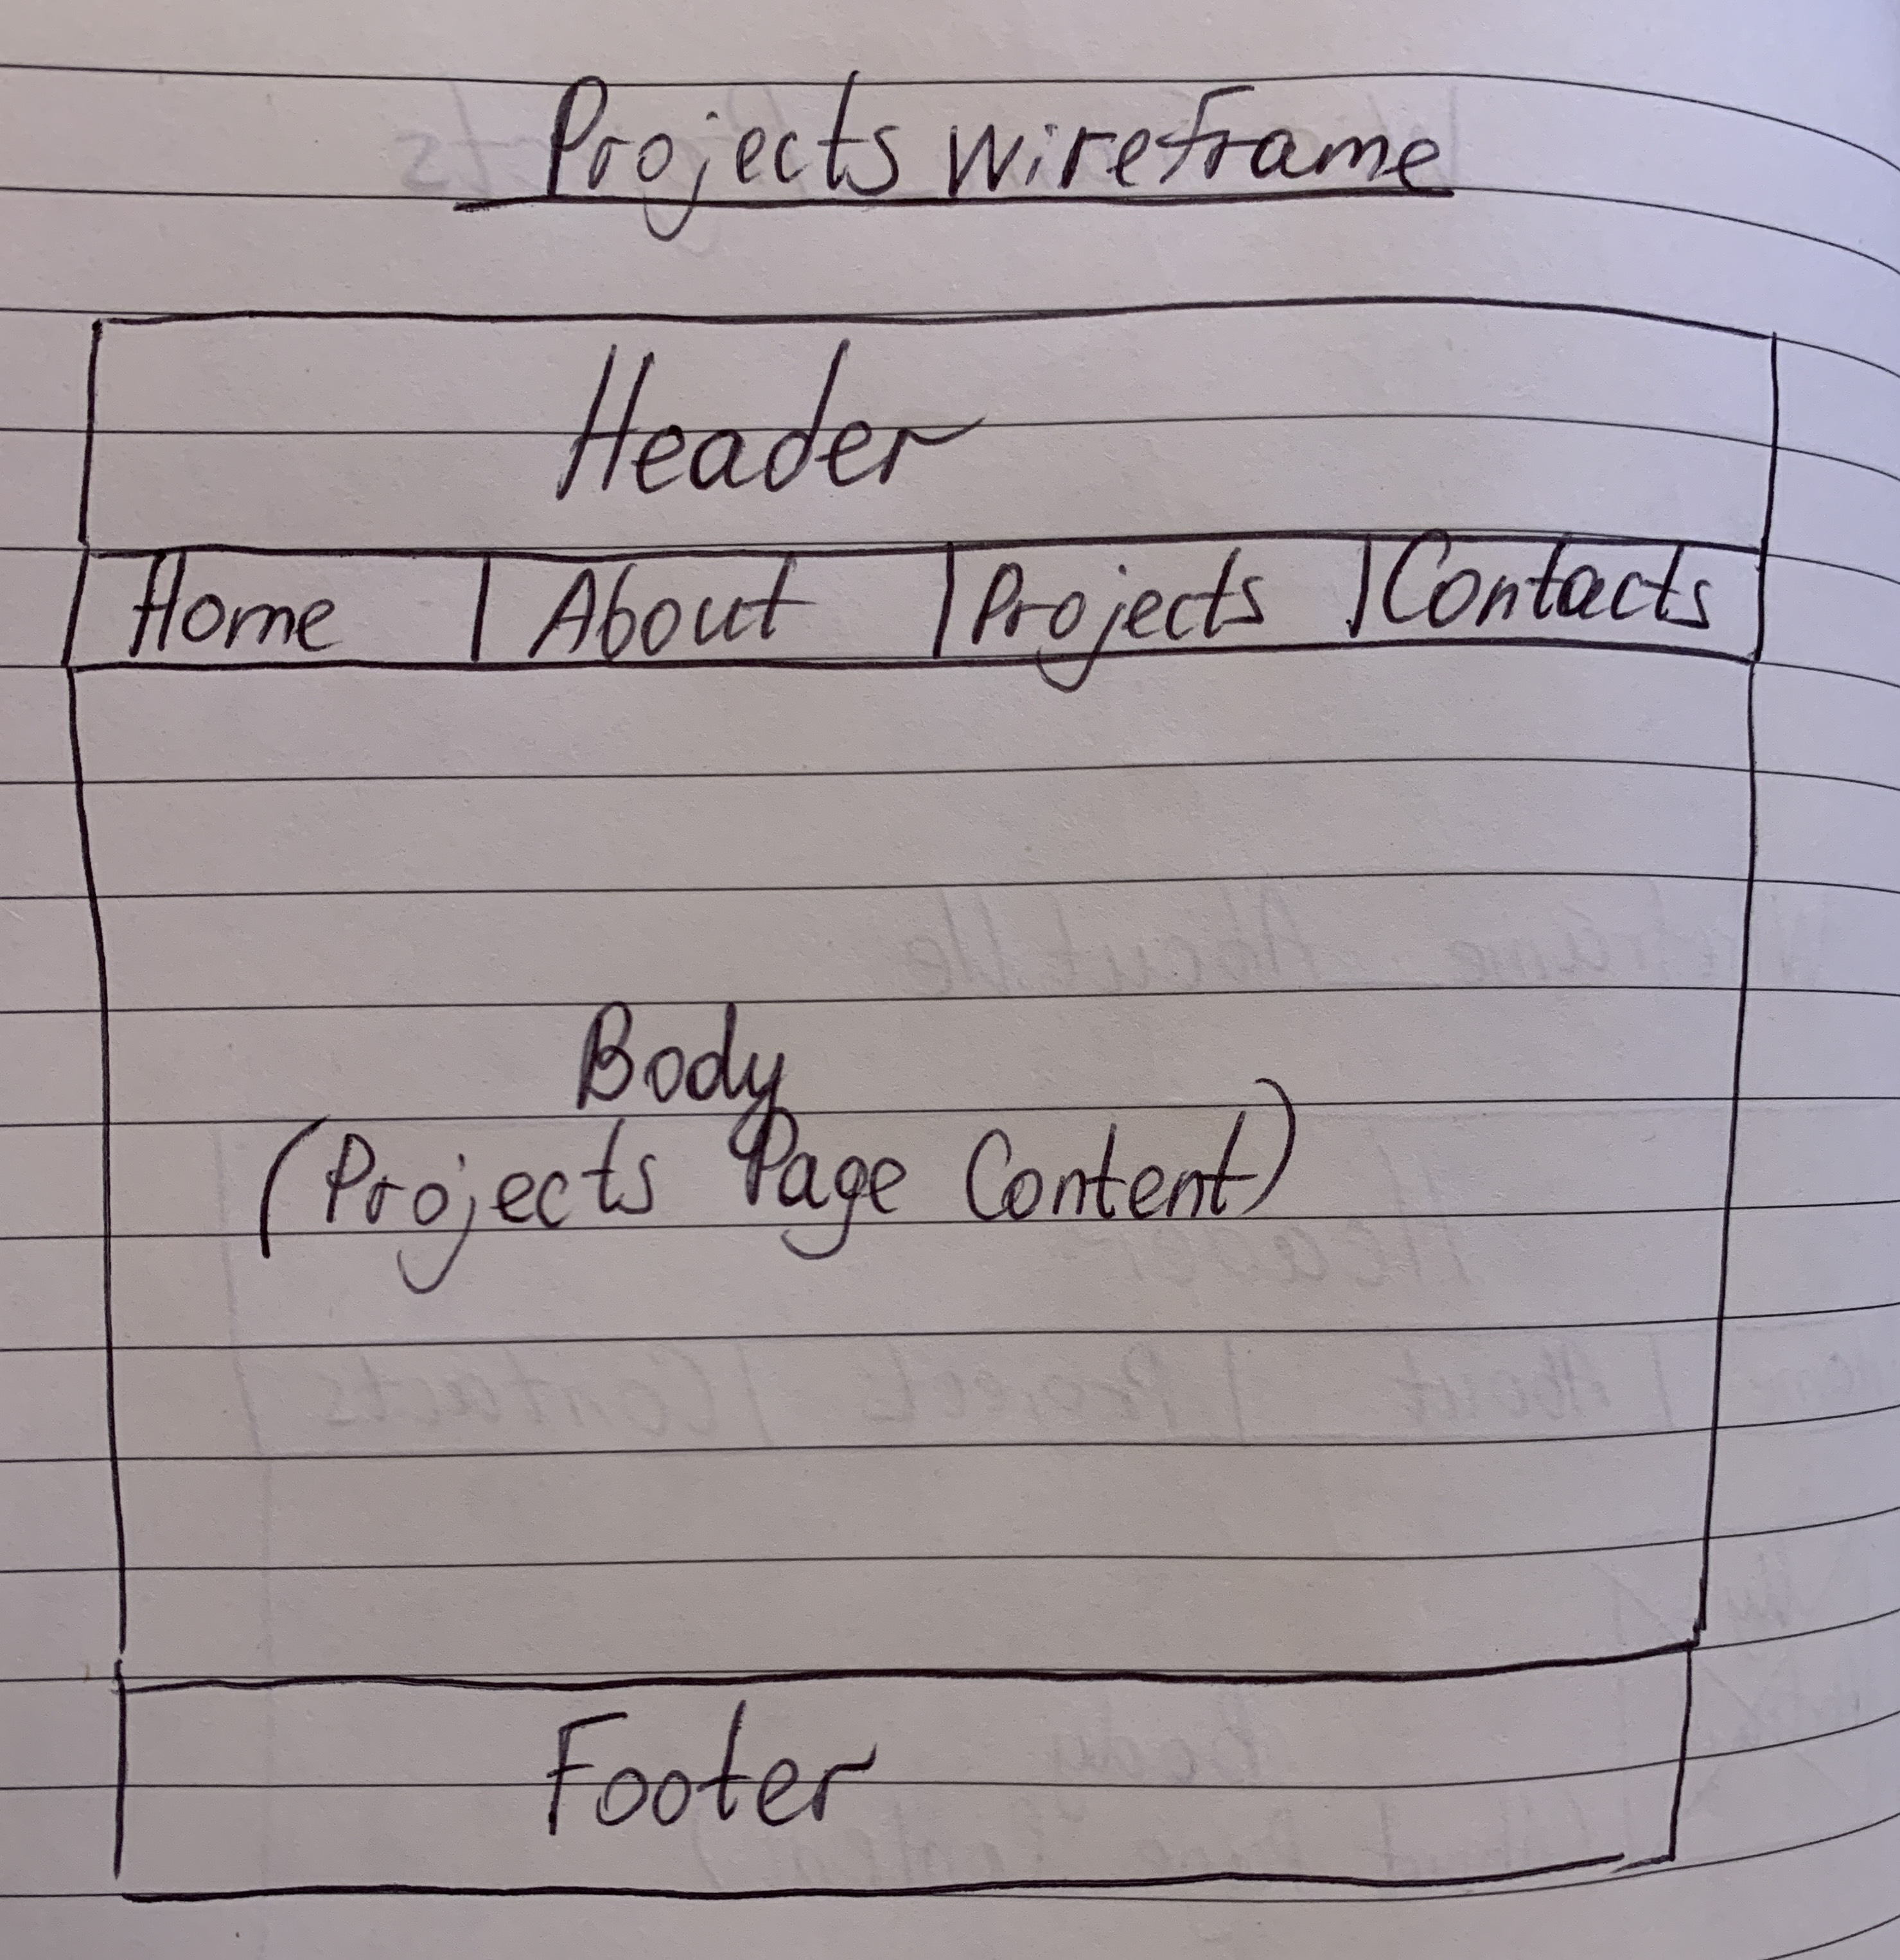 Projects wireframe
Header
Home | About | Projects | Contacts
Body
(Projects Page Content)
Footer